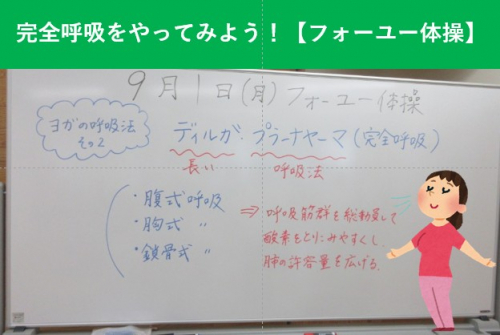 完全呼吸をやってみよう！【フォーユー体操】
9月1日(月)フォーユー体操
ヨガの呼吸法
その2
ディルガ・プラーナヤーマ(完全呼吸)
長い 呼吸法
・腹式呼吸
・胸式 〃
・鎖骨式 〃
⇒ 呼吸筋群を総動員して
酸素をとりこみやすくし
肺の許容量を広げる.